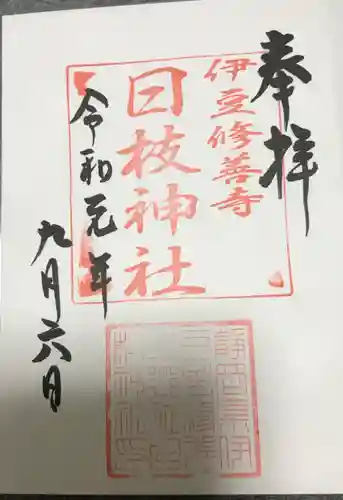 奉拝
伊豆修善寺
日枝神社
令和元年
九月六日